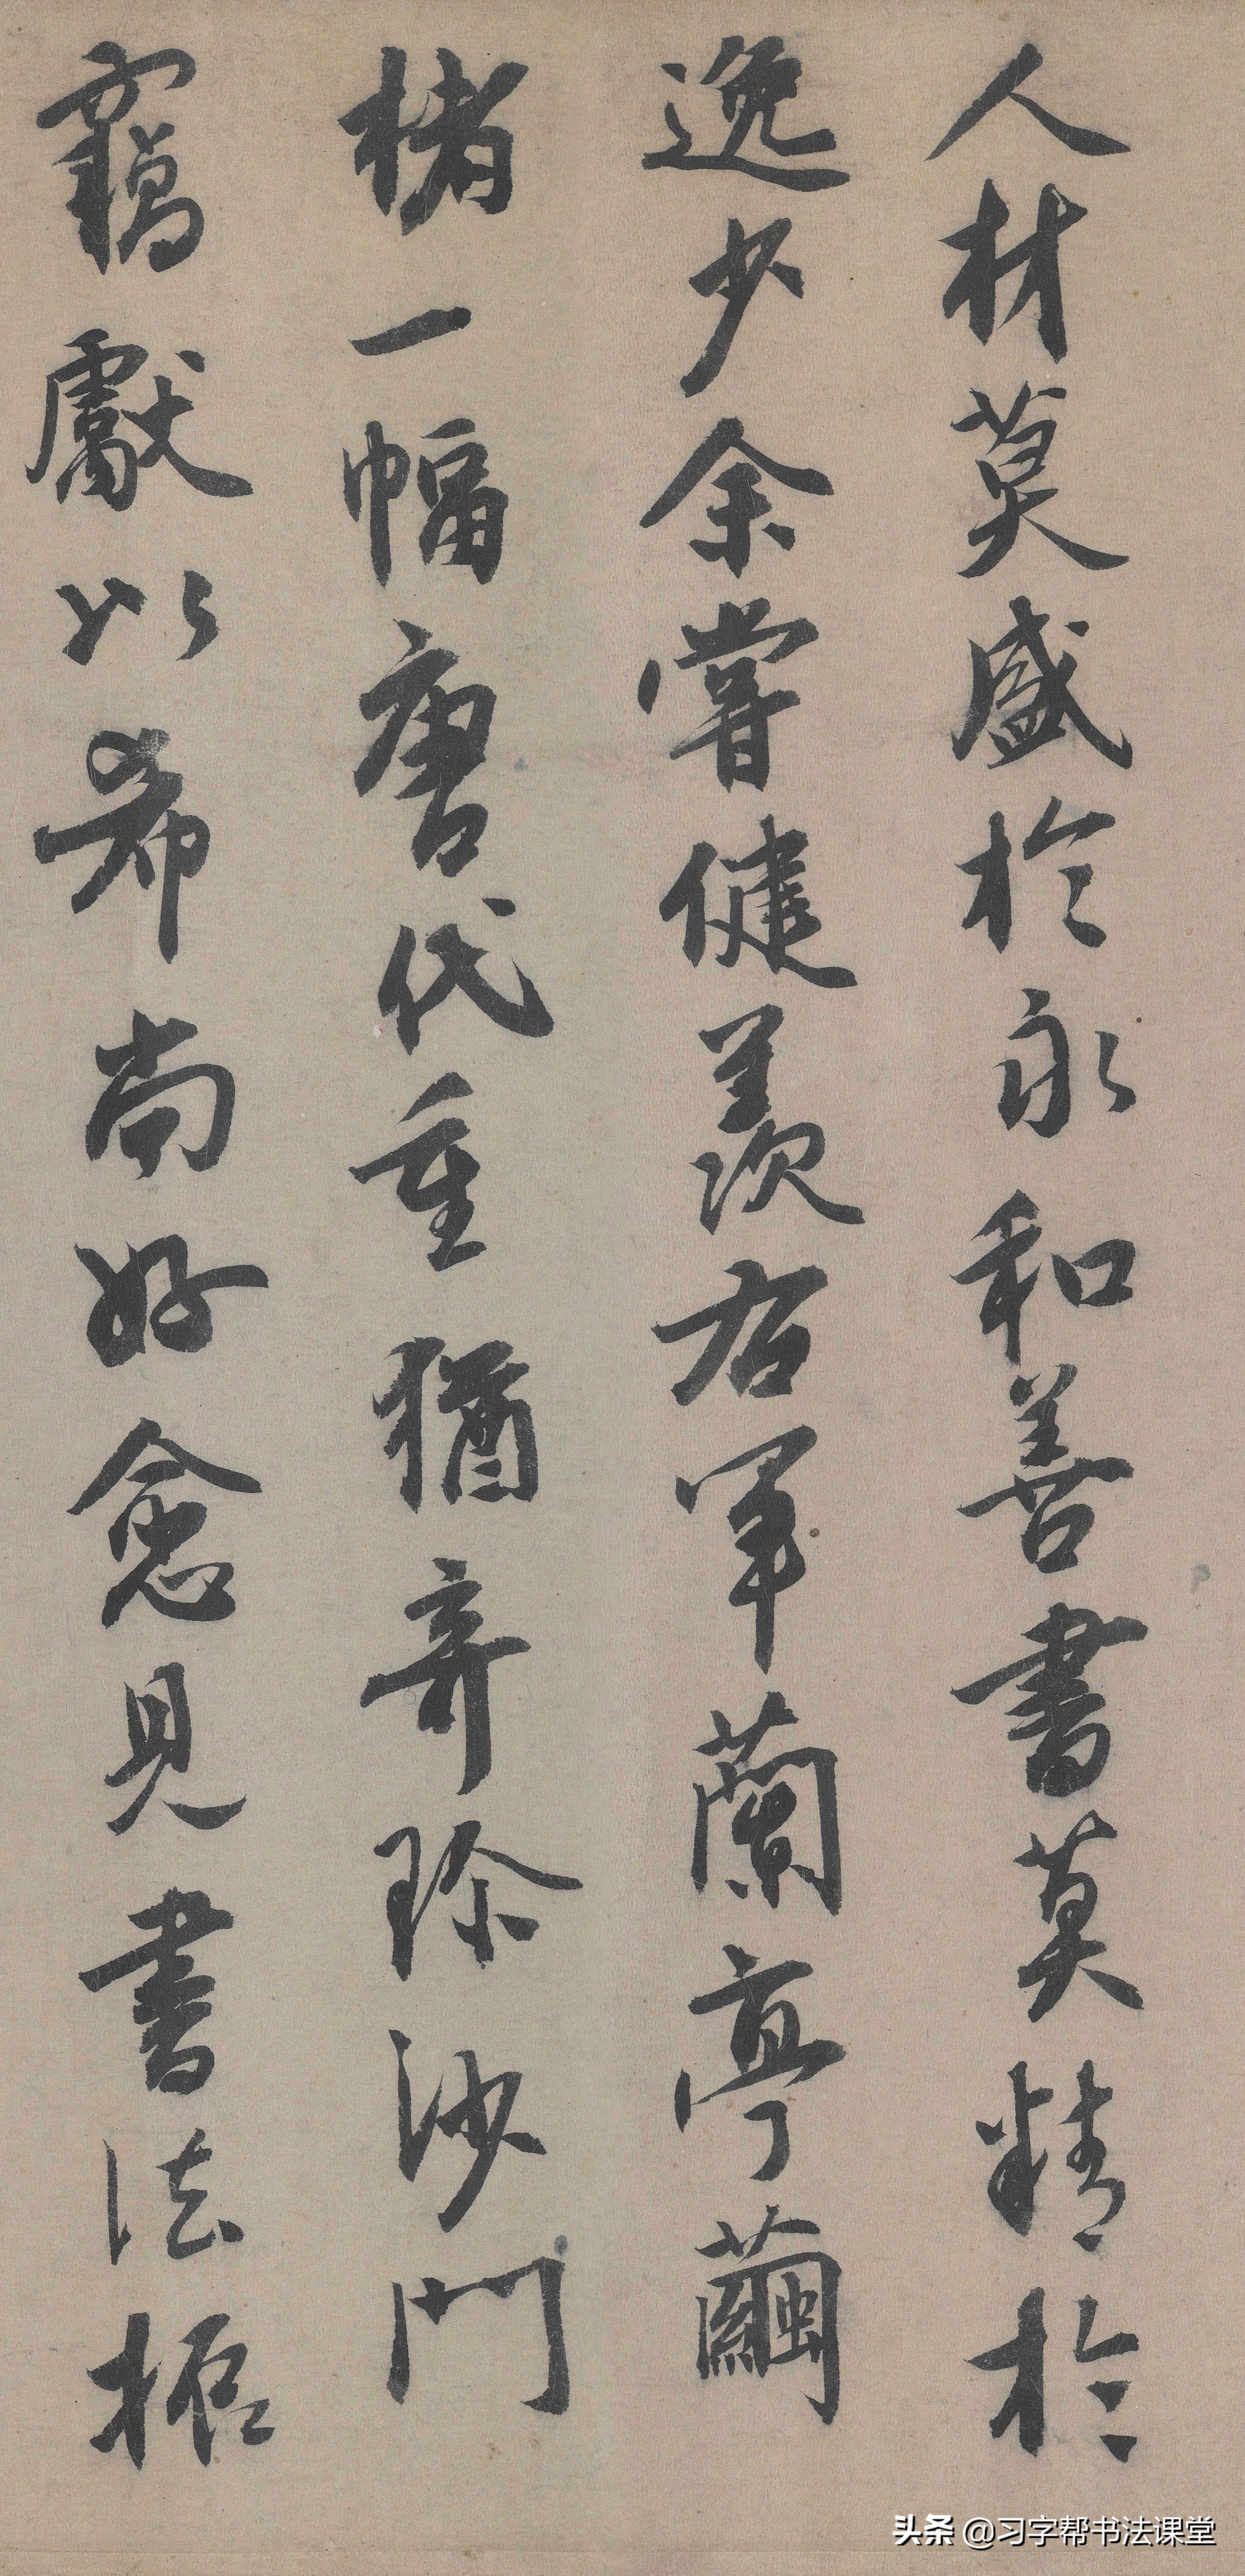 人材莫盛於永和善書莫精於
逸少余嘗健羨右軍蘭亭繭
楮一幅唐代重猶奇珍沙門
竊獻以希尚好愈見書法振
头条 @习字帮书法课堂